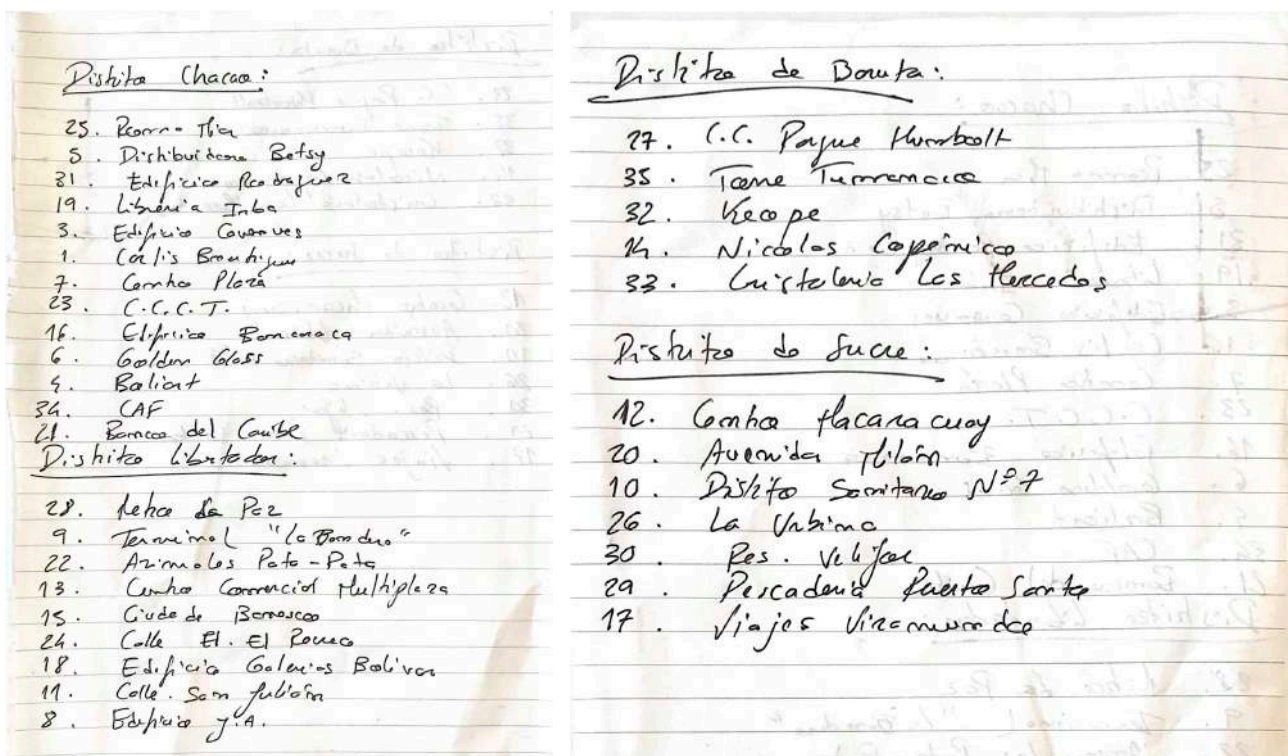 Distrito Chacao:
25.
5. Distribuidora Betsy
31. Edificio Rodriguez
19. Libreria Inba
3. Edificio
1.
7. Centro Plaza
23. C.C.C.T.
16. Edificio
6. Golden Glass
4. Baliart
34. CAF
21. Banco del Caribe
Distrito Libertador:
28. La Paz
9. Terminal "La Bandera"
22. Animales Pata-Pata
13. Centro Comercial Multiplaza
15. Ciudad Banesco
24. Calle El. El Rosario
18. Edificio Galerias Bolivar
11. Calle. San Julián
8. Edificio J.A.
Distrito de Baruta:
27. C.C. Parque Humboldt
35. Torre
32.
14. Nicolas Copérnico
33. Cristaleria Las Mercedes
Distrito de Sucre:
12. Centro Macaracuay
20. Avenida Milán
10. Distrito Sanitario Nº 7
26. La Urbina
30. Res.
29. Pescaderia Puerto Santo
17. Viajes Viramundo